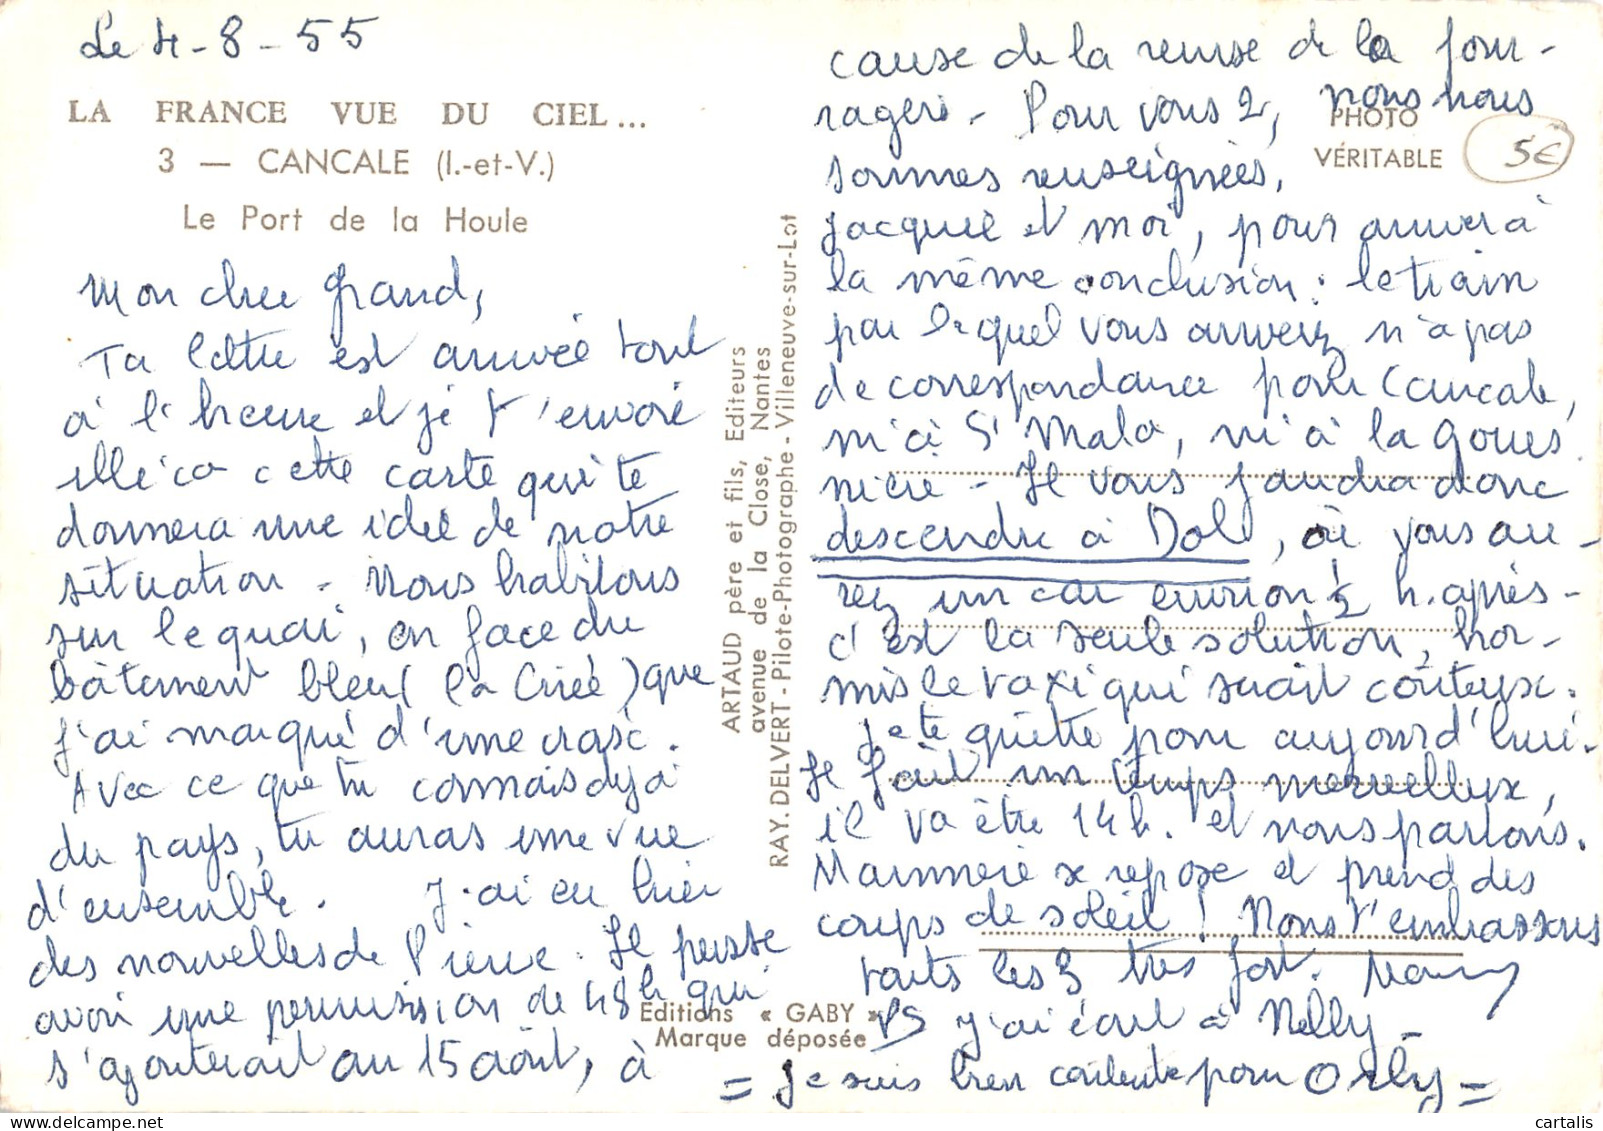 Le 4-8-55
LA FRANCE VUE DU CIEL...
3 — CANCALE (I.-et-V.)
Le Port de la Houle
Mon cher grand,
Ta lettre est arrivée tout
à l'heure et je t'envoie
illico cette carte qui te
donnera une idée de notre
situation - Nous habitons
sur le quai, en face du
bâtiment bleu (la Criée) que
j'ai marqué d'une croix.
Avec ce que tu connais déjà
du pays, tu auras une vue
d'ensemble. J'ai eu hier
des nouvelles de Pierre. Il pense
avoir une permission de 48h qui
s'ajouterait au 15 août, à
ARTAUD père et fils, Editeurs
avenue de la Close, Nantes
RAY. DELVERT - Pilote-Photographe - Villeneuve-sur-Lot
Editions « GABY »
Marque déposée
PHOTO
VÉRITABLE
5€
cause de la remise de la four-
ragère - Pour vous 2, nous nous
sommes renseignées,
Jacquie et moi, pour arriver à
la même conclusion : le train
par lequel vous arrivez n'a pas
de correspondance pour Cancale,
ni à St Malo, ni à la Goues
nière - Il vous faudra donc
descendre à Dol, où vous au-
rez un car environ 1/2 h. après -
c'est la seule solution, hor-
mis le taxi qui serait coûteux.
Je te quitte pour aujourd'hui.
Il fait un temps merveilleux,
il va être 14h. et nous partons.
Mammie se repose et prend des
coups de soleil ! Nous t'embrassons
touts les 3 très fort.
PS J'ai écrit à Nelly -
= Je suis bien contente pour Orly =
cartalis
delcampe.net